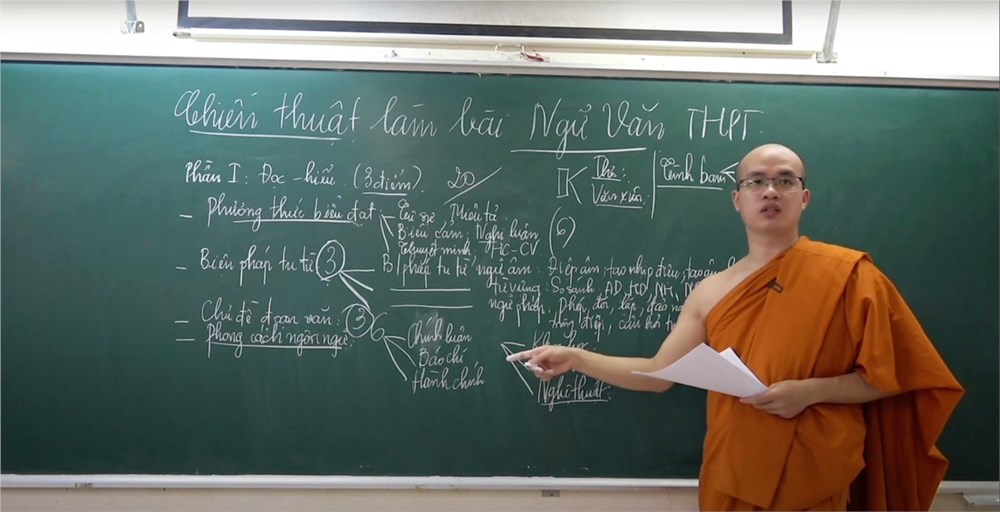 Chiến thuật làm bài Ngữ Văn THPT.
Phần I: Đọc - hiểu. (3 điểm). 20 II Thơ: Văn xuôi. Tình bạn
- Phương thức biểu đạt Tự sự Miêu tả
Biểu cảm; Nghị luận (6)
Thuyết minh, HC-CV
- Biện pháp tu từ (3) B/pháp tu từ ngữ âm: Điệp âm, tạo nhịp điệu, tạo âm
từ vựng: So sánh, AD, HD, NH,
ngữ pháp: Phép, đối, lặp, đảo
- Chủ đề đoạn văn: (3) điệp, câu hỏi
- Phong cách ngôn ngữ: 6 Chính luận
Báo chí
Hành chính Nghệ thuật.